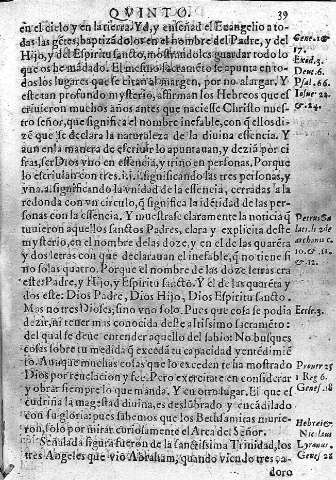 QVINTO. 39
en el cielo y en la tierra. Yd, y enseñad el Euangelio a to-
das las gētes, baptizādolos en el nombre del Padre, y del
Hijo, y del Espiritu sancto, mostrandoles guardar todo lo
que os he mādado. El mesmo se apunta en to-
dos los lugares que se citan al margen, por no alargar. Y
este tan profundo mysterio, affirman los Hebreos que es
criuieron muchos años antes que naciesse Christo nue-
stro señor, que significa el nombre inefable, con q̄ ellos di-
zē que se declara la naturaleza de la diuina essencia. Y
aun en la manera de escriuir lo apuntauan, y dezia por ci
fras, ser Dios vno en essencia, y trino en personas. Porque
lo escriuian con tres .i.i.i. significando las tres personas, y
vna .a. significando la vnidad de la essencia, cerradas a la
redonda con vn circulo, q̄ significa la idētidad de las per-
sonas con la essencia. Y muestrase claramente la noticia q̄
tuuieron aquellos sanctos Padres, clara y explicita deste
mysterio, en el nombre de las doze, y en el de las quarēta
y dos letras con que declarauan el inefable, q̄ no tiene si
no solas quatro. Porque el nombre de las doze letras era
este: Padre, y Hijo, y Espiritu sancto. Y el de las quarēta y
dos este: Dios Padre, Dios Hijo, Dios Espiritu sancto.
Mas no tres Dioses, sino vno solo. Pues que cosa se podia
dezir, ni tener mas conocida deste altissimo sacramēto:
del qual se deue entender aquello del sabio: No busques
cosas sobre tu medida q̄ exceda tu capacidad y entēdimiē
to. Aunque muchas cosas que lo exceden te ha mostrado
Dios por reuelacion y fee. Pero exercitate en considerar
y obrar siempre lo que manda. Y en otro lugar. El que es
cudriña la magestad diuina, es deslubrado y encādilado
con su gloria: pues sabemos que los Bethsamitas murie-
ron, solo por mirar curiosamente el Arca del Señor.
Señalada figura fueron de la sanctissima Trinidad, los
tres Angeles que vio Abraham, quando viendo tres, a-
doro
Gene. 1&
17.
Exod. 3.
Deut. 6.
Psal. 66.
Iosue. 22
&. 24.
Petrus Ga
lati. li. 2 de
archanu c.
10. & .11.
& .12.
Eccle. 3.
Prouer. 25
1. Reg. 6.
Genes. 18
Hebraie
Nicolaus
Lyranus.
Genes. 18